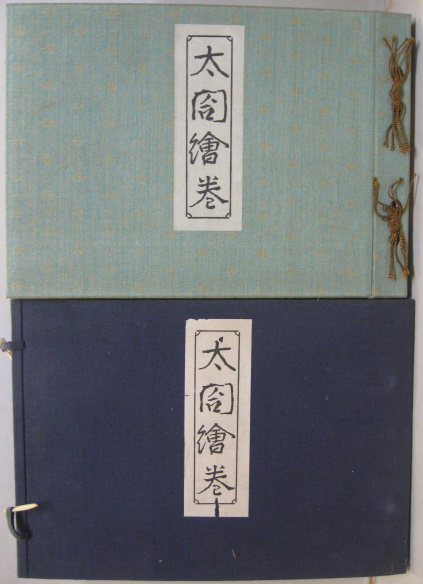 太閤繪巻
太閤繪巻